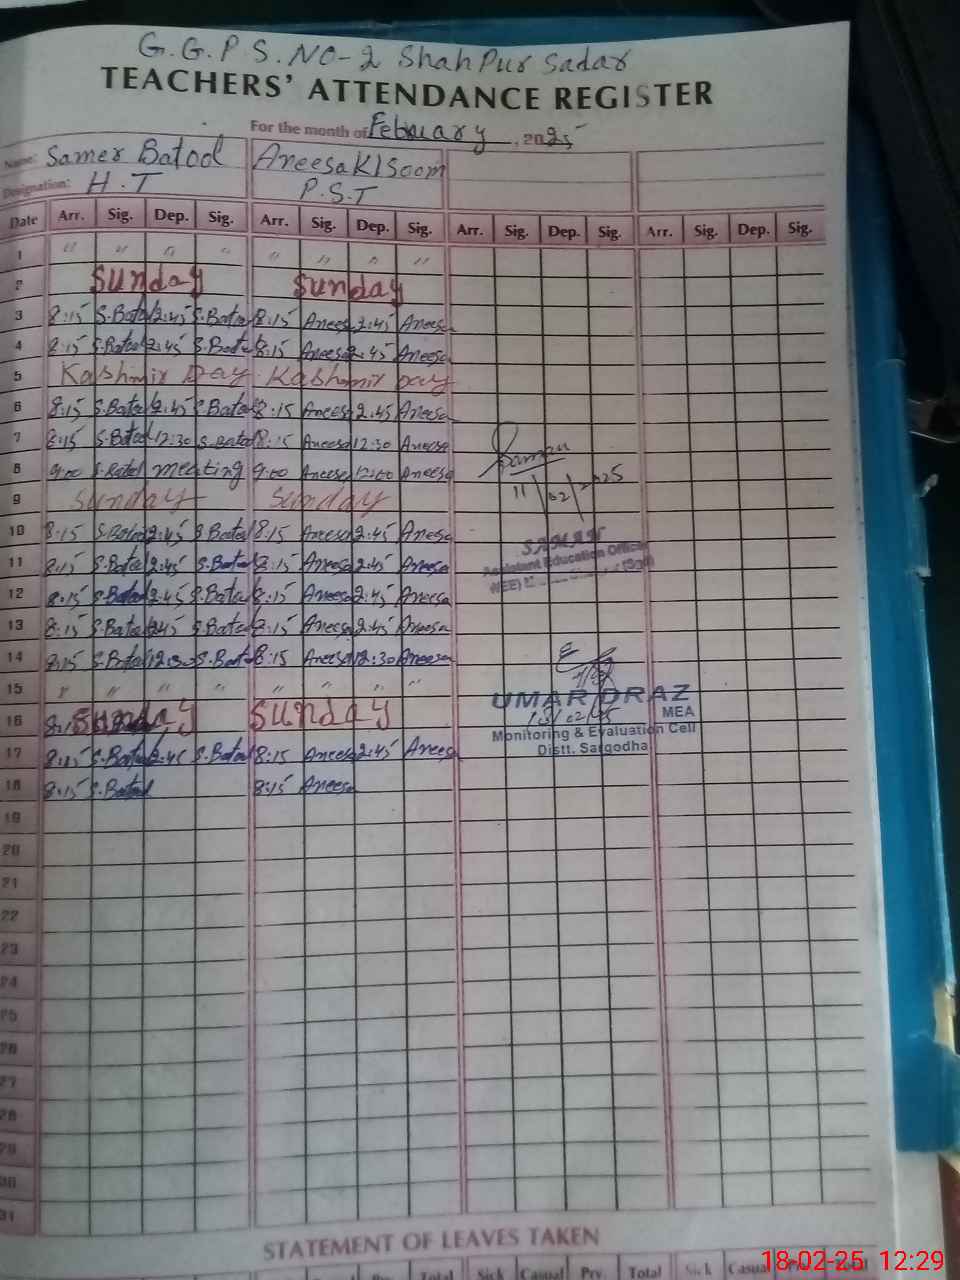 G.G.P.S. NO-2 Shahpur Sadar
TEACHERS' ATTENDANCE REGISTER
For the month of February, 2025
Name: Samer Batool Aneesa Klsoom
Designation: H.T P.S.T
Date Arr. Sig. Dep. Sig. Arr. Sig. Dep. Sig. Arr. Sig. Dep. Sig. Arr. Sig. Dep. Sig.
1 " " " " " " " "
2 Sunday Sunday
3 8:15 S.Batool 2:45 S.Batool 8:15 Aneesa 2:45 Aneesa
4 8:15 S.Batool 2:45 S.Batool 8:15 Aneesa 2:45 Aneesa
5 Kashmir Day Kashmir Day
6 8:15 S.Batool 2:45 S.Batool 8:15 Aneesa 2:45 Aneesa
7 8:15 S.Batool 12:30 S.Batool 8:15 Aneesa 12:30 Aneesa
8 9:00 S.Batool meating 9:00 Aneesa 12:00 Aneesa
9 Sunday Sunday
11/02/2025
10 8:15 S.Batool 2:45 S.Batool 8:15 Aneesa 2:45 Aneesa
SAMAN
Assistant Education Officer
11 8:15 S.Batool 2:45 S.Batool 8:15 Aneesa 2:45 Aneesa
12 8:15 S.Batool 2:45 S.Batool 8:15 Aneesa 2:45 Aneesa
13 8:15 S.Batool 2:45 S.Batool 8:15 Aneesa 2:45 Aneesa
14 8:15 S.Batool 12:30 S.Batool 8:15 Aneesa 12:30 Aneesa
15 " " " " " " " "
UMAR DRAZ
MEA
16 Sunday Sunday
Monitoring & Evaluation Cell
Distt. Sargodha
17 8:15 S.Batool 2:45 S.Batool 8:15 Aneesa 2:45 Aneesa
18 8:15 S.Batool 8:15 Aneesa
19
20
21
22
23
24
25
26
27
28
29
30
31
STATEMENT OF LEAVES TAKEN
Total Sick Casual Prv. Total Sick Casual
18-02-25 12:29